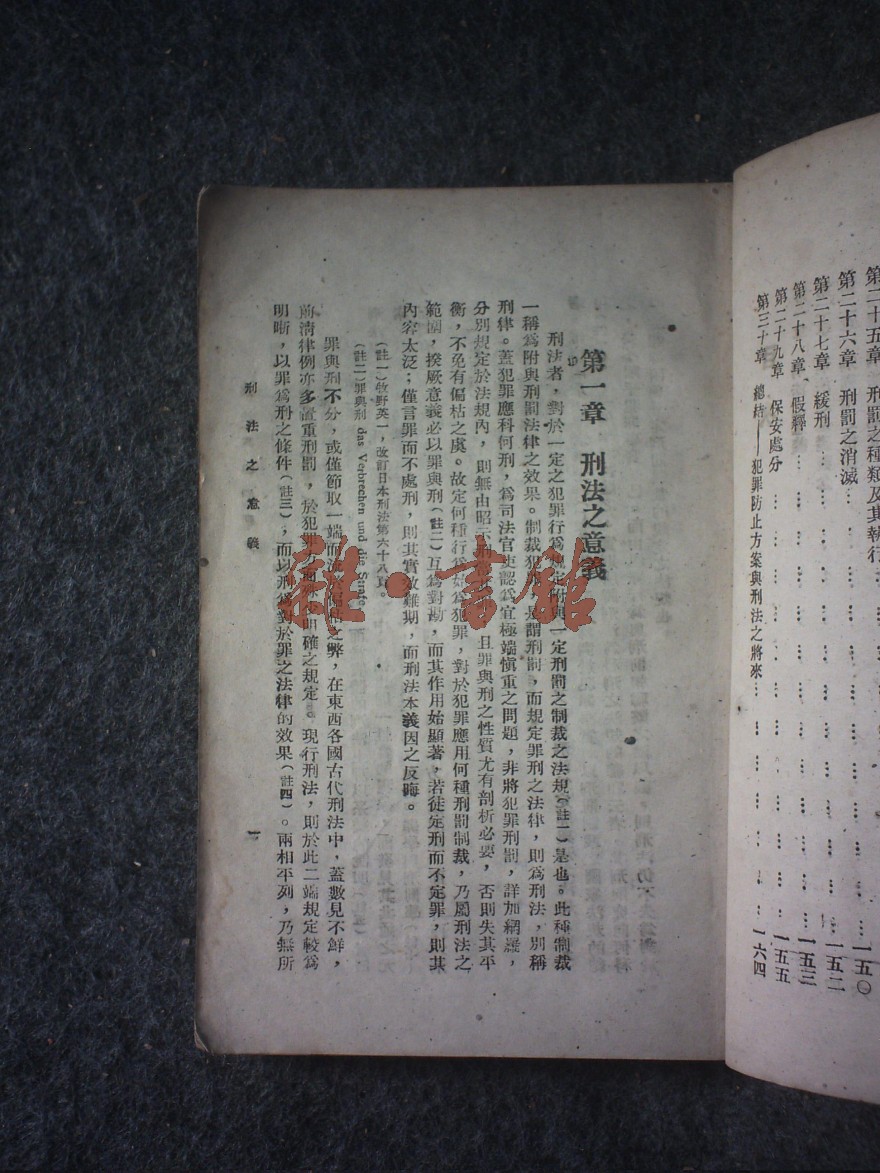 第二十五章 刑罰之種類及其執行 一五〇
第二十六章 刑罰之消滅 一五二
第二十七章 緩刑 一五三
第二十八章 假釋 一五五
第二十九章 保安處分
第三十章 總結——犯罪防止方案與刑法之將來 一六四
第一章 刑法之意義
刑法者，對於一定之犯罪行爲規定附與一定刑罰之制裁之法規（註一）是也。此種制裁
一稱爲附與刑罰法律之效果。制裁犯罪，是謂刑罰，而規定罪刑之法律，則爲刑法，別稱
刑律。蓋犯罪應科何刑，爲司法官吏認爲宜極端愼重之問題，非將犯罪刑罰，詳加網羅，
分別規定於法規內，則無由昭 且罪與刑之性質尤有剖析必要，否則失其平
衡，不免有偏枯之虞。故定何種行爲 爲犯罪，對於犯罪應用何種刑罰制裁，乃屬刑法之
範圍，揆厥意義必以罪與刑（註二）互爲對勘，而其作用始顯著，若徒定刑而不定罪，則其
內容太泛；僅言罪而不處刑，則其實效難期，而刑法本義因之反晦。
（註一）牧野英一，改訂日本刑法第六十八頁
（註二）罪與刑 das Verbrechen und die Strafe
罪與刑不分，或僅節取一端而 之弊，在東西各國古代刑法中，蓋數見不鮮，
前清律例亦多置重刑罰，於犯罪方面 明確之規定。現行刑法，則於此二端規定較爲
明晰，以罪爲刑之條件（註三），而以刑爲對於罪之法律的效果（註四）。兩相平列，乃無所
刑法之意義
一
雜·書館